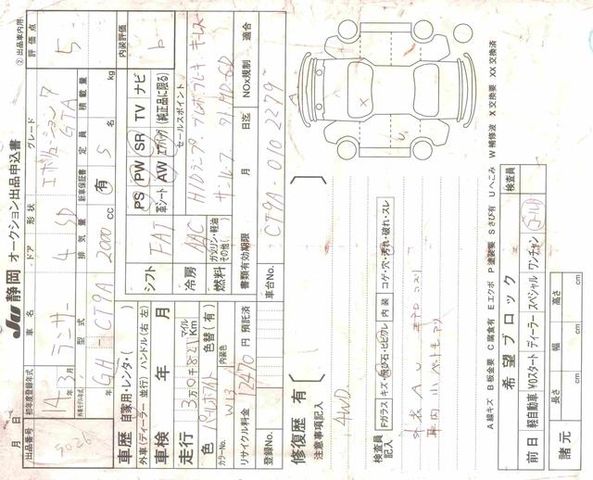 JU静岡 オークション出品申込書
② 出品車内用
月 日
出品番号 9026
初年度登録年式 14年3月
車名 ランサー
ドア 4 形状 SD
グレード エボリューション7 GTA
評価点 5
内装評価 b
型式 GH-CT9A
排気量 2000 cc
新車保証書 有
定員 5 名
積載量 kg
車歴 自家用・レンタ・( )
外車(ディーラー 並行) ハンドル(右 左)
シフト FAT
PS PW SR TV ナビ
革シート AW エアバッグ (純正品に限る)
車検 年 月
冷房 AAC
セールスポイント
走行 3万0千821 Km マイル
燃料 ガソリン・軽油 その他( )
色 パールホワイト 色替(有)
カラーNo. W13 内装色
サンルーフ 外MD CD
リサイクル料金 12470 円 預託済
書類有効期限 月 日迄
NOx規制 適合
登録No.
車台No. CT9A-0102279
修復歴 有( )
注意事項記入
4WD
検査員記入
Fガラス キズ・飛び石・ヒビワレ 内装 コゲ・穴・汚れ・破れ・スレ
A 線キズ B 板金要 C 腐食有 E エクボ P 塗装要 S さび有 U へこみ W 補修波 X 交換要 XX 交換済
希望ブロック
検査員
前日 軽自動車 ¥0スタート ディーラー スペシャル ワンチャン
諸元 長さ cm 幅 cm 高さ cm